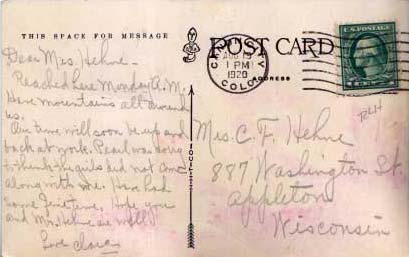 THIS SPACE FOR MESSAGE
POST CARD
ADDRESS
U.S. POSTAGE
AUG
1 PM
1920
COLO.
Dear Mrs. Hehne -
Reached here Monday A.M.
Have mountains all around
us.
Our time will soon be up and
back at work. Pearl was
think the girls did not come
along with me. Have had
some fine time. Hope you
and Mr. Hehne are well.
Love
Mrs. C. F. Hehne
887 Washington St.
Appleton
Wisconsin
RLH